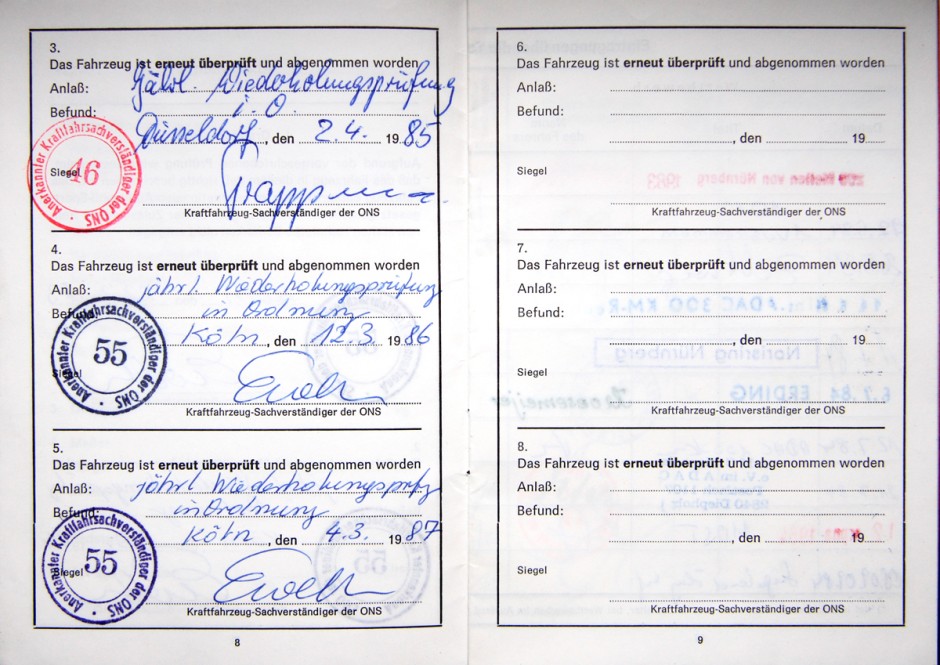 3.
Das Fahrzeug ist erneut überprüft und abgenommen worden
Anlaß: Jährl. Wiederholungsprüfung
Befund: i. O.
Düsseldorf, den 2.4. 1985
Anerkannter Kraftfahrsachverständiger der ONS
46
Siegel
Kraftfahrzeug-Sachverständiger der ONS
4.
Das Fahrzeug ist erneut überprüft und abgenommen worden
Anlaß: jährl. Wiederholungsprüfung
Befund: in Ordnung
Köln, den 12.3. 1986
Anerkannter Kraftfahrsachverständiger der ONS
55
Siegel
Kraftfahrzeug-Sachverständiger der ONS
5.
Das Fahrzeug ist erneut überprüft und abgenommen worden
Anlaß: jährl Wiederholungsprüfg
Befund: in Ordnung
Köln, den 4.3. 1987
Anerkannter Kraftfahrsachverständiger der ONS
55
Siegel
Kraftfahrzeug-Sachverständiger der ONS
8
6.
Das Fahrzeug ist erneut überprüft und abgenommen worden
Anlaß:
Befund:
, den 19
Siegel
Kraftfahrzeug-Sachverständiger der ONS
7.
Das Fahrzeug ist erneut überprüft und abgenommen worden
Anlaß:
Befund:
, den 19
Siegel
Kraftfahrzeug-Sachverständiger der ONS
8.
Das Fahrzeug ist erneut überprüft und abgenommen worden
Anlaß:
Befund:
, den 19
Siegel
Kraftfahrzeug-Sachverständiger der ONS
9